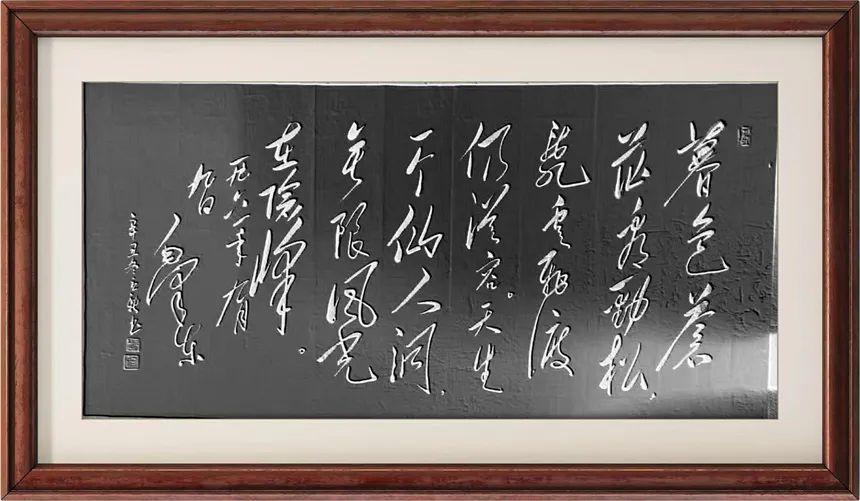 暮色蒼
茫看勁松，
亂雲飛渡
仍從容。天生
一个仙人洞，
无限風光
在險峰。
一九六一年九月
九日
毛澤東
辛丑冬